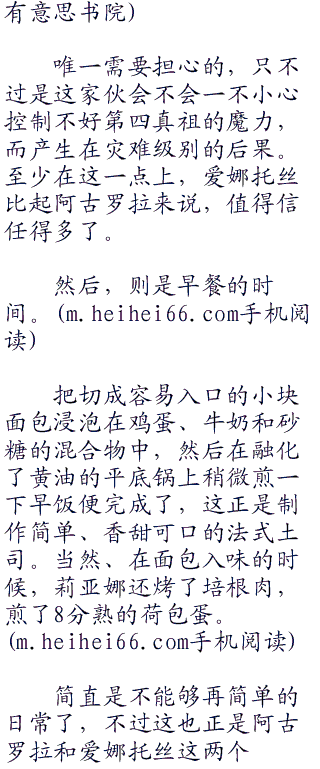 有意思书院)
唯一需要担心的，只不
过是这家伙会不会一不小心
控制不好第四真祖的魔力，
而产生在灾难级别的后果。
至少在这一点上，爱娜托丝
比起阿古罗拉来说，值得信
任得多了。
然后，则是早餐的时
间。(m.heihei66.com手机阅
读)
把切成容易入口的小块
面包浸泡在鸡蛋、牛奶和砂
糖的混合物中，然后在融化
了黄油的平底锅上稍微煎一
下早饭便完成了，这正是制
作简单、香甜可口的法式土
司。当然、在面包入味的时
候，莉亚娜还烤了培根肉，
煎了8分熟的荷包蛋。
(m.heihei66.com手机阅读)
简直是不能够再简单的
日常了，不过这也正是阿古
罗拉和爱娜托丝这两个